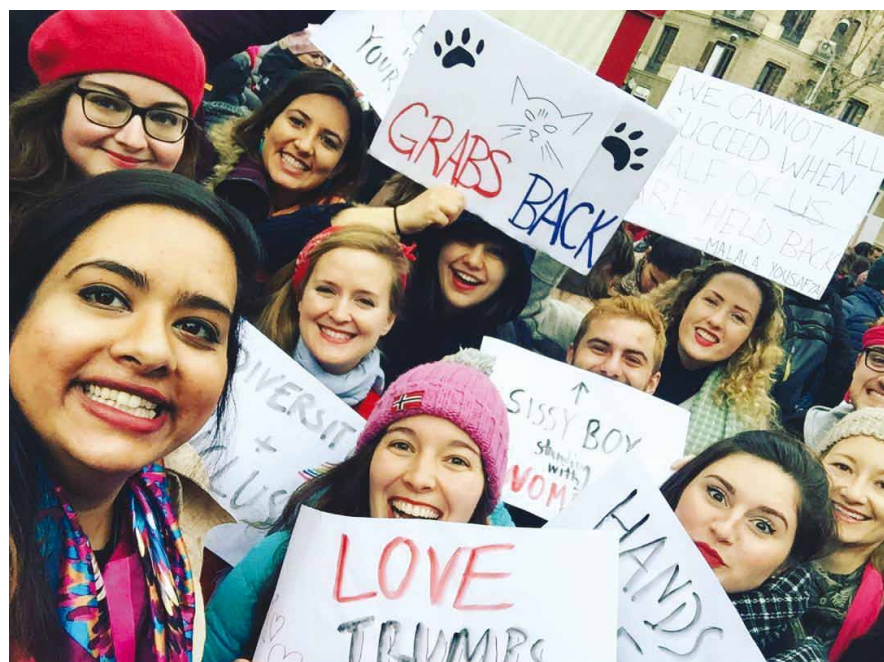 YOUR
GRABS
BACK
WE CANNOT ALL
SUCCEED WHEN
HALF OF US
ARE HELD BACK
-MALALA YOUSAFZAI
DIVERSIT
+
CLUS
SISSY BOY
standing
with
WOM
HANDS
LOVE
TRUMPS